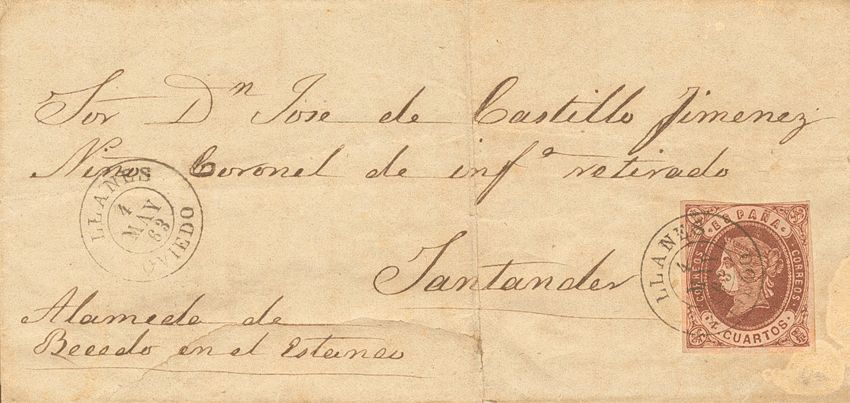 Sor Dn Jose de Castillo Jimenez
Niño, Coronel de infª retirado
LLANES
4
MAY
63
OVIEDO
Santander
Alameda de
Becedo en el Estanco
LLANES
4
ESPAÑA
CORREOS
CORREOS
4 CUARTOS